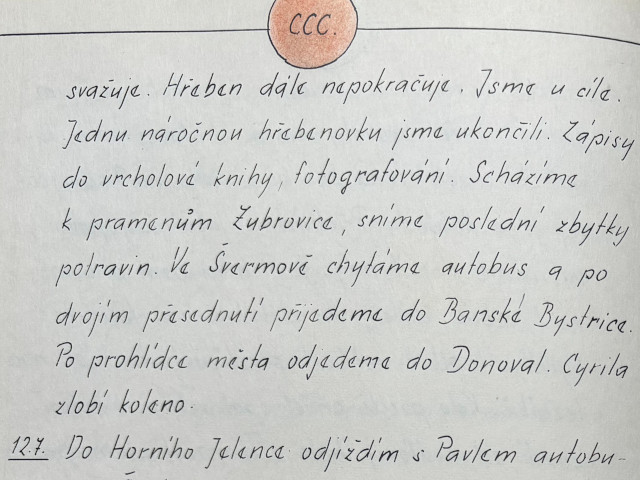 CCC.
svažuje. Hřeben dále nepokračuje. Jsme u cíle.
Jednu náročnou hřebenovku jsme ukončili. Zápisy
do vrcholové knihy, fotografování. Scházíme
k pramenům Zubrovice, sníme poslední zbytky
potravin. Ve Švermově chytáme autobus a po
dvojím přesednutí přijedeme do Banské Bystrice.
Po prohlídce města odjedeme do Donoval. Cyrila
zlobí koleno.
12.7. Do Horního Jelence odjíždím s Pavlem autobu-